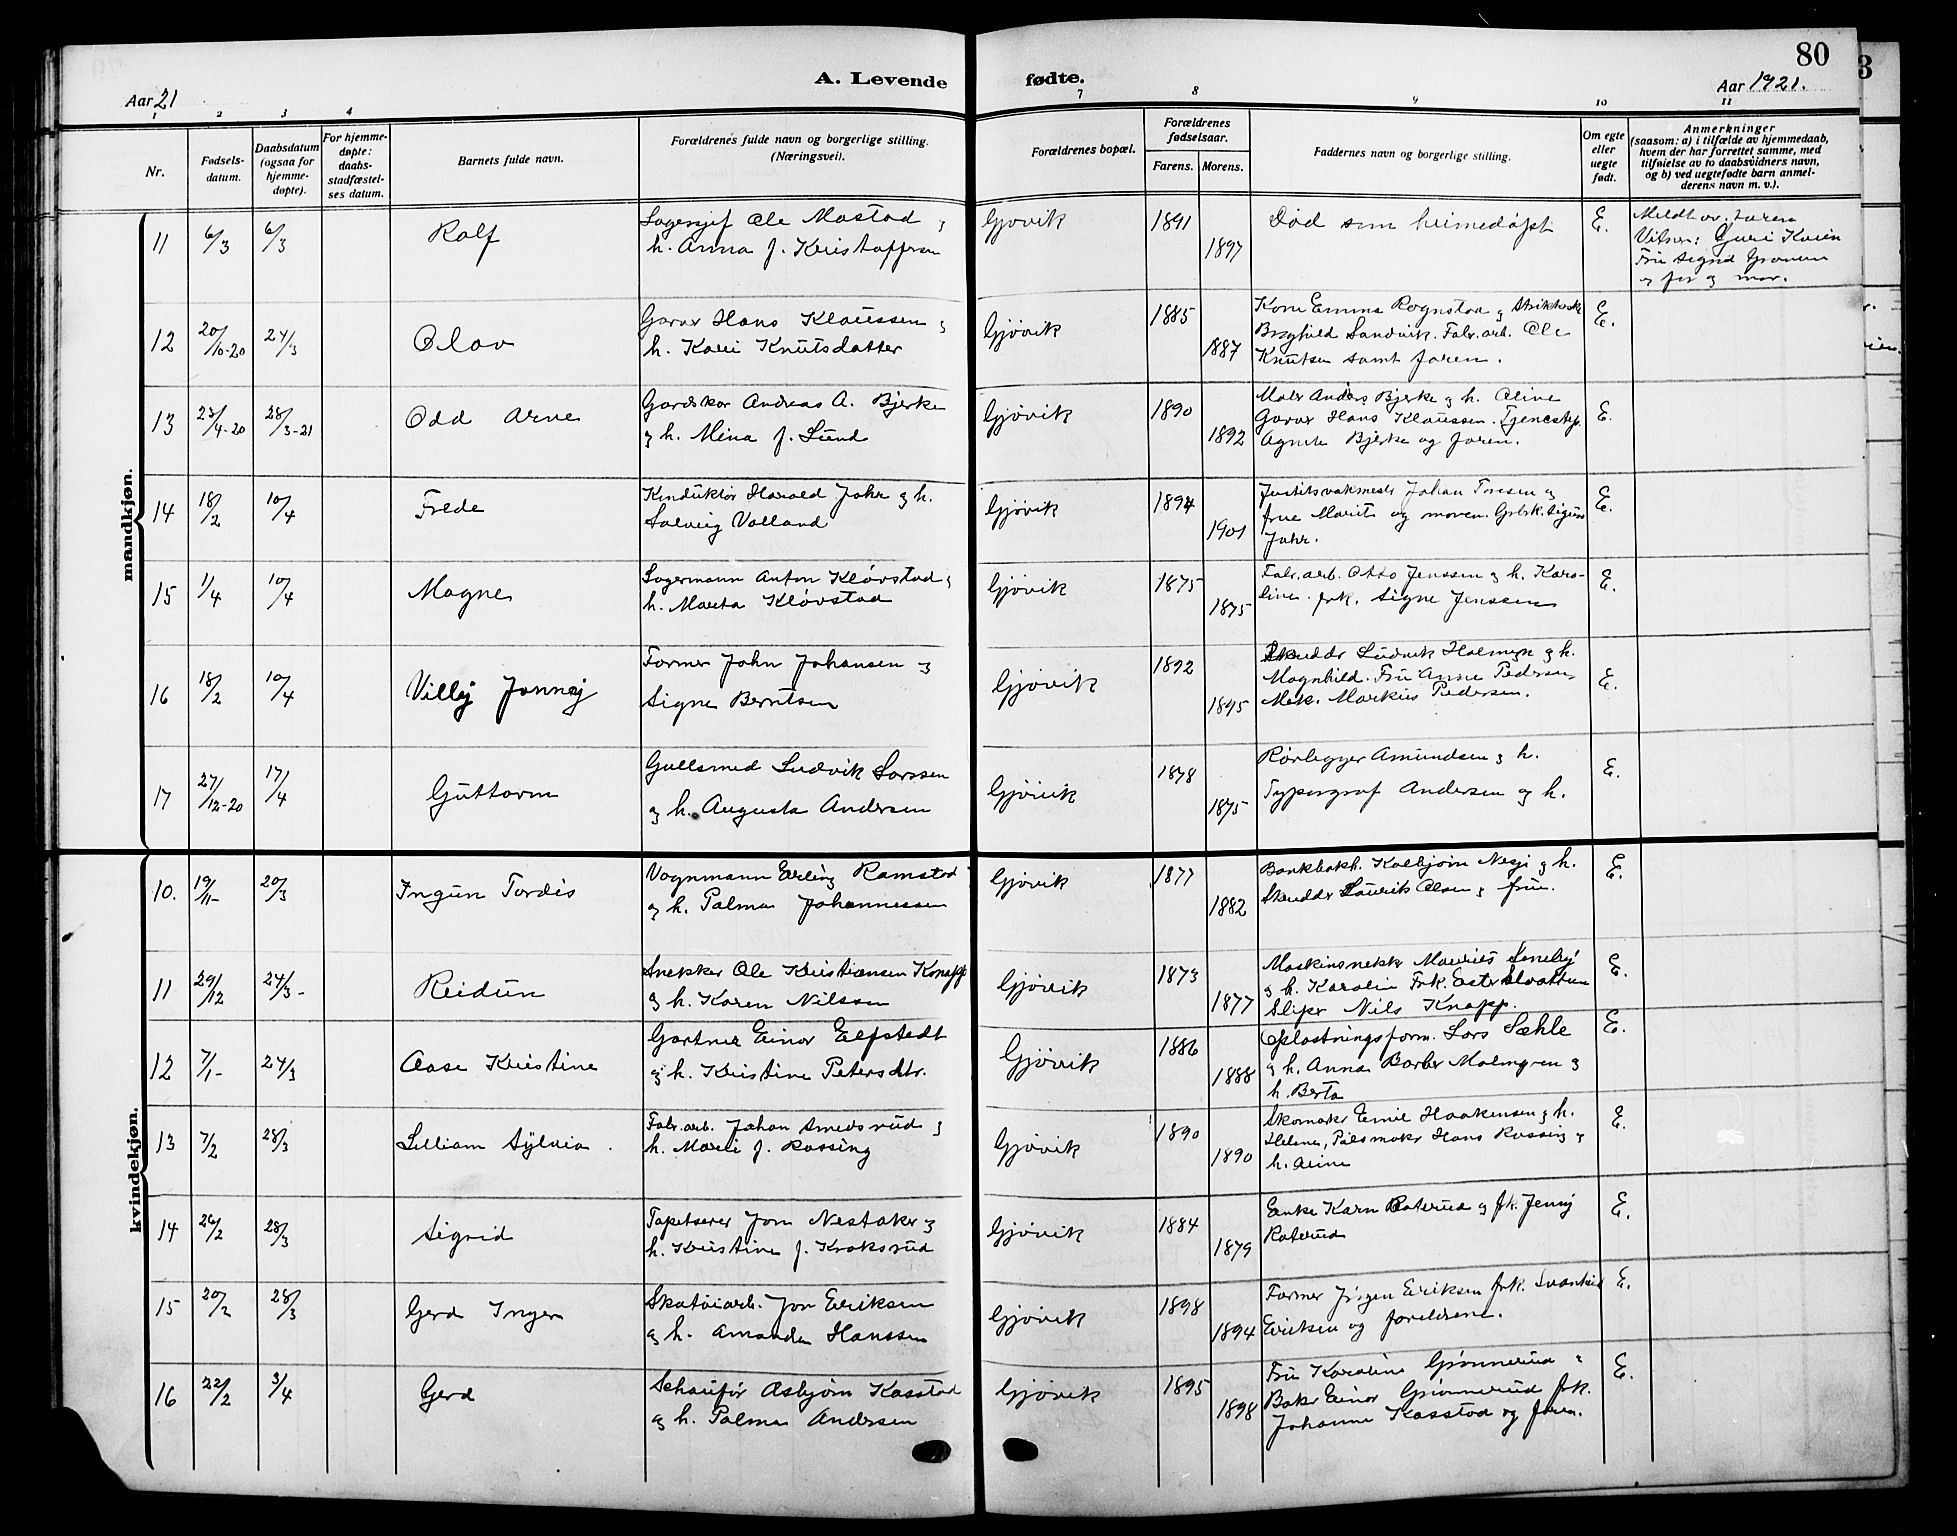 80
A. Levende fødte.
Aar 21
Aar 1921.
1 2 3 4 7 8 9 10 11
Nr.
Fødsels-
datum.
Daabsdatum
(ogsaa for
hjemme-
døpte).
For hjemme-
døpte:
daabs-
stadfæstel-
ses datum.
Barnets fulde navn.
Forældrenes fulde navn og borgerlige stilling.
(Næringsvei).
Forældrenes bopæl.
Forældrenes
fødselsaar.
Farens. Morens.
Faddernes navn og borgerlige stilling.
Om egte
eller
uegte
født.
Anmerkninger
(saasom: a) i tilfælde av hjemmedaab,
hvem der har forrettet samme, med
tilføielse av to daabsvidners navn,
og b) ved uegtefødte barn anmel-
derens navn m. v.).
mandkjøn.
11 6/3 6/3 Rolf
Lagersjef Ole Mostad og
h. Anna f. Kristoffersen
Gjøvik 1891 1897
Død som heimedøpt
E.
Meldt av. faren
Vitner: Guri Kvien
Fru Sigrid Granum
og far og mor.
12 20/10-20 24/3 Olav
Garver Hans Klaussen og
h. Kari Knutsdatter
Gjøvik 1885 1887
Kone Emma Rognstad og
Borghild Sandvik. Fabr. arb. Ole
Knutsen samt faren.
E.
13 23/4-20 28/3-21 Odd Arne
Gardskar Andreas A. Bjerke
og h. Mina f. Lund
Gjøvik 1890 1892
Maler Anders Bjerke og h. Oline
Garver Hans Klaussen. Tjenestep.
Agnete Bjerke og faren.
E.
14 18/2 10/4 Frede
Konduktør Harald Jahr og h.
Solveig Volland
Gjøvik 1894 1901
Johan Toresen og
frue Marit og moren. Gbrk. Sigurd
Jahr.
E.
15 1/4 10/4 Magne
Lagermann Anton Kløvstad og
h. Marta Kløvstad
Gjøvik 1875 1875
Fabr. arb. Otto Jenssen og h. Karo-
line. frk. Signe Jenssen
E.
16 18/2 10/4 Villy Jonny
Former John Johansen og
Signe Berntsen
Gjøvik 1892 1895
Skredder Ludvik Holmgr og h.
Magnhild. Fru Anne Pedersen
Mek. Markus Pedersen.
E.
17 27/12-20 17/4 Guttorm
Gullsmed Ludvik Larssen
og h. Augusta Andersen
Gjøvik 1878 1875
Rørlegger Amundsen og h.
Typograf Andersen og h.
E.
kvindekjøn.
10. 19/11- 20/3 Ingun Tordis
Vognmann Erling Ramstad
og h. Palma Johannessen
Gjøvik 1877 1882
Bankbokh. Kolbjørn Nesje og h.
Skredder Laurik Olsen og frue.
E.
11 29/12 24/3- Reidun
Snekker Ole Kristiansen Knapp
og h. Karen Nilssen
Gjøvik 1873 1877
Maskinsnekk Maurits
og h. Karolin Frk. Ester
Sliper Nils Knapp.
E.
12 7/1- 24/3 Aase Kristine
Gartner Einar Elfstedt
og h. Kristine Petersdtr.
Gjøvik 1886 1888
Oplastningsform. Lars Sæhle
og h. Anna Barber Malmgren og
h. Berta
E.
13 7/2 28/3 Lilliam Sylvia.
Fabr. arb. Johan Smedsrud og
h. Marli f. Rossing
Gjøvik 1890 1890
Skomaker Emil Haakensen og h.
Helene, Pølsmaker Hans Rossing og
h. Aline
E.
14 26/2 28/3 Sigrid
Tapetserer Jon Nestaker og
h. Kristine f. Kroksrud
Gjøvik 1884 1879
Enke Karn Roterud og frk. Jenny
Roterud
E.
15 20/2 28/3 Gerd Inger
Skotøiarb. Jon Eriksen
og h. Amanda Hanssen
Gjøvik 1898 1894
Former Jørgen Eriksen frk. Svanhild
Eriksen og foreldrene.
E.
16 22/2 3/4 Gerd
Schauför Asbjørn Kasstad
og h. Palma Andersen
Gjøvik 1895 1898
Fru Karoline Grønnerud og
Baker Einar Grønnerud frk.
Johanne Kasstad og faren.
E.